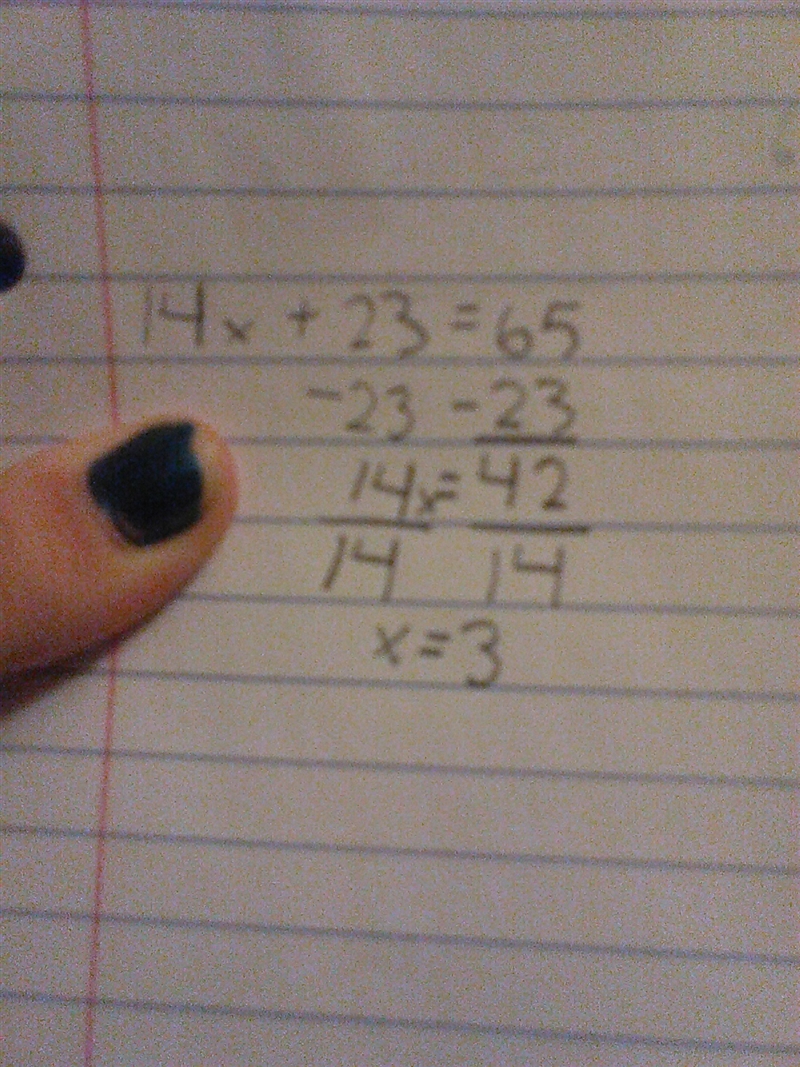 14x + 23 = 65
-23 -23
14x = 42
14 14
x = 3